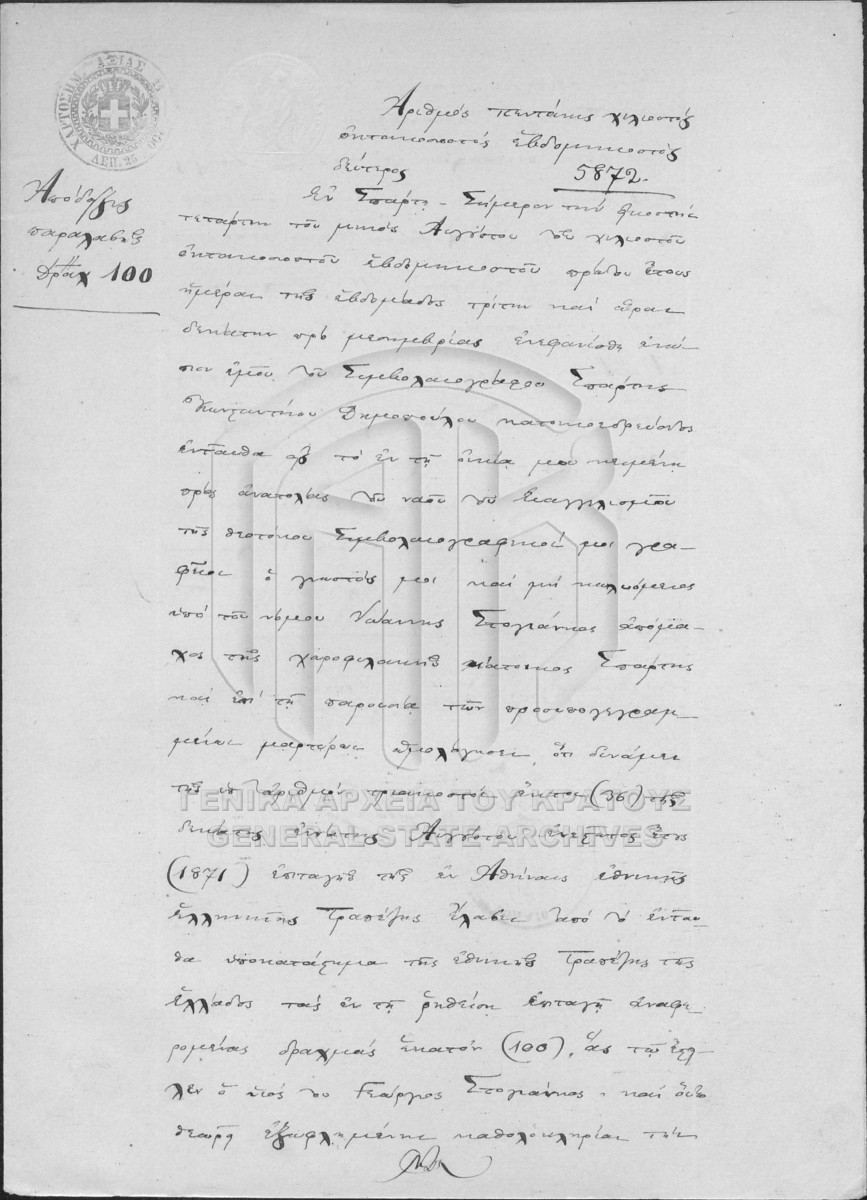 ΧΑΡΤΟΣΗΜ. ΑΞΙΑΣ
ΛΕΠ. 25
Αριθμός πεντάκις χιλιοστός
οκτακοσιοστός εβδομηκοστός
δεύτερος 5872.
Απόδειξις
παραλαβής
Δραχ 100
Εν Σπάρτη σήμερον την εικοστήν
τετάρτην του μηνός Αυγούστου του χιλιοστού
οκτακοσιοστού εβδομηκοστού πρώτου έτους
ημέραν της εβδομάδος τρίτην και ώραν
δεκάτην προ μεσημβρίας ενεφανίσθη ενώ
πιον εμού του Συμβολαιογράφου Σπάρτης
Κωνσταντίνου Δημοπούλου κατοικοεδρεύοντος
ενταύθα εις το εν τη οικία μου κειμένη
προς ανατολάς του ναού του Ευαγγελισμού
της Θεοτόκου Συμβολαιογραφικόν μου γρα-
φείον ο γνωστός μοι και μη κωλυόμενος
υπό του νόμου Ιωάννης Στογιάννος απόμα-
χος της χωροφυλακής κάτοικος Σπάρτης
και επί τη παρουσία των προσυπογεγραμ
μένων μαρτύρων ωμολόγησεν, ότι δυνάμει
της υπ αριθμόν τριακοστόν έκτον (36) της
δεκάτης ενάτης Αυγούστου ενεστώτος έτους
(1871) επιταγής της εν Αθήναις εθνικής
ελληνικής Τραπέζης έλαβεν από το ενταύ-
θα υποκατάστημα της εθνικής Τραπέζης της
Ελλάδος τας εν τη ρηθείση επιταγή αναφε
ρομένας δραχμάς εκατόν (100), ας τω έστει
λεν ο υιός του Γεώργιος Στογιάννος, και ούτω
θεωρεί εξωφλημένην καθ ολοκληρίαν την
ΓΕΝΙΚΑ ΑΡΧΕΙΑ ΤΟΥ ΚΡΑΤΟΥΣ
GENERAL STATE ARCHIVES